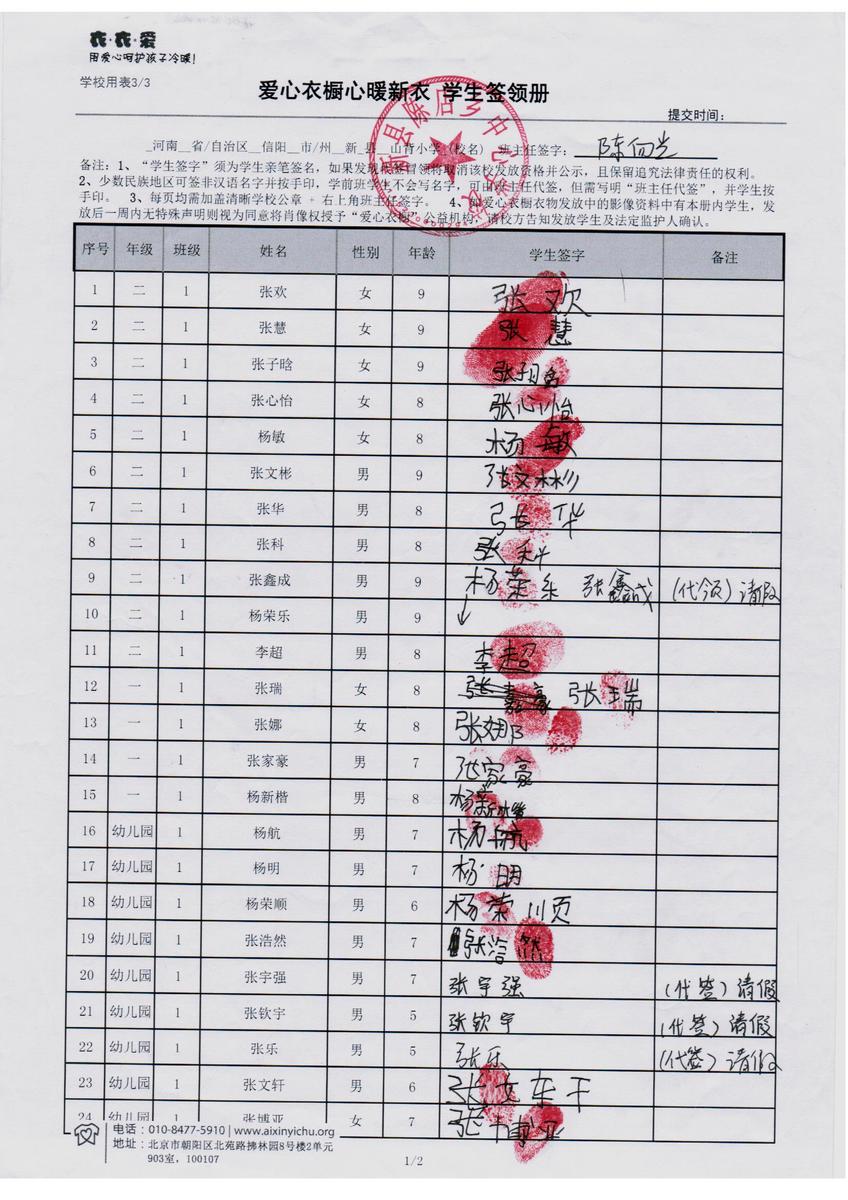 衣·衣·爱
用爱心呵护孩子冷暖!
学校用表3/3
爱心衣橱心暖新衣 学生签领册
提交时间:
_河南__省/自治区__信阳__市/州__新_县__山背小学_(校名) 班主任签字:
备注:1、“学生签字”须为学生亲笔签名,如果发现代签冒领将取消该校发放资格并公示,且保留追究法律责任的权利。
2、少数民族地区可签非汉语名字并按手印,学前班学生不会写名字,可由班主任代签,但需写明“班主任代签”,并学生按
手印。 3、每页均需加盖清晰学校公章 + 右上角班主任签字。 4、如爱心衣橱衣物发放中的影像资料中有本册内学生,发
放后一周内无特殊声明则视为同意将肖像权授予“爱心衣橱”公益机构,请校方告知发放学生及法定监护人确认。
序号 年级 班级 姓名 性别 年龄 学生签字 备注
1 二 1 张欢 女 9 张欢
2 二 1 张慧 女 9 张慧
3 二 1 张子晗 女 9 张子晗
4 二 1 张心怡 女 8 张心怡
5 二 1 杨敏 女 8 杨敏
6 二 1 张文彬 男 9 张文彬
7 二 1 张华 男 8 张华
8 二 1 张科 男 8 张科
9 二 1 张鑫成 男 9 杨荣乐 张鑫成 (代领)请假
10 二 1 杨荣乐 男 9 ↓
11 二 1 李超 男 8 李超
12 一 1 张瑞 女 8 张嘉豪 张瑞
13 一 1 张娜 女 8 张娜
14 一 1 张家豪 男 7 张家豪
15 一 1 杨新楷 男 8 杨新楷
16 幼儿园 1 杨航 男 7 杨航
17 幼儿园 1 杨明 男 7 杨明
18 幼儿园 1 杨荣顺 男 6 杨荣顺
19 幼儿园 1 张浩然 男 7 张浩然
20 幼儿园 1 张宇强 男 7 张宇强 (代签)请假
21 幼儿园 1 张钦宇 男 5 张钦宇 (代签)请假
22 幼儿园 1 张乐 男 5 张乐 (代签)请假
23 幼儿园 1 张文轩 男 6 张文车干
24 幼儿园 1 张博亚 女 7 张博亚
电话:010-8477-5910 | www.aixinyichu.org
地址:北京市朝阳区北苑路拂林园8号楼2单元
903室,100107
1/2